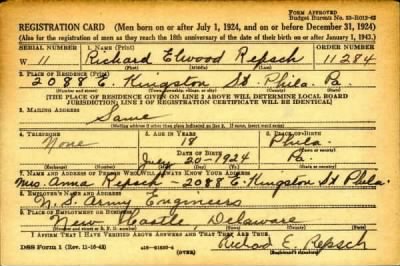 FORM APPROVED
Budget Bureau No. 33-R012-42
REGISTRATION CARD (Men born on or after July 1, 1924, and on or before December 31, 1924)
(Also for the registration of men as they reach the 18th anniversary of the date of their birth on or after January 1, 1943.)
SERIAL NUMBER 1. NAME (Print) ORDER NUMBER
W 11 Richard Elwood Repsch 11284
(First) (Middle) (Last)
2. PLACE OF RESIDENCE (Print)
2088 E. Kingston St Phila. Pa.
(Number and street) (Town, township, village, or city) (County) (State)
[THE PLACE OF RESIDENCE GIVEN ON LINE 2 ABOVE WILL DETERMINE LOCAL BOARD
JURISDICTION; LINE 2 OF REGISTRATION CERTIFICATE WILL BE IDENTICAL]
3. MAILING ADDRESS
Same
[Mailing address if other than place indicated on line 2. If same, insert word same]
4. TELEPHONE 5. AGE IN YEARS 6. PLACE OF BIRTH
None 18 Phila.
DATE OF BIRTH
July 20-1924 Pa.
7. NAME AND ADDRESS OF PERSON WHO WILL ALWAYS KNOW YOUR ADDRESS
Mrs. Anna Repsch - 2088 E. Kingston St Phila.
8. EMPLOYER'S NAME AND ADDRESS
U.S. Army Engineers
9. PLACE OF EMPLOYMENT OR BUSINESS
New Castle Delaware
I AFFIRM THAT I HAVE VERIFIED ABOVE ANSWERS AND THAT THEY ARE TRUE.
DSS Form 1 (Rev. 11-16-42) (OVER) Richard E. Repsch